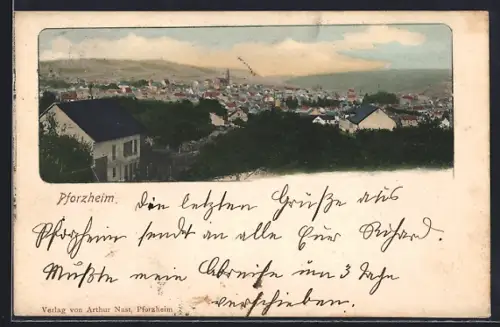 Pforzheim.
Die letzten Grüße aus
Pforzheim sendet an alle Euer Richard.
Mußte meine Abreise um 3 Tage
verschieben.
Verlag von Arthur Nast, Pforzheim